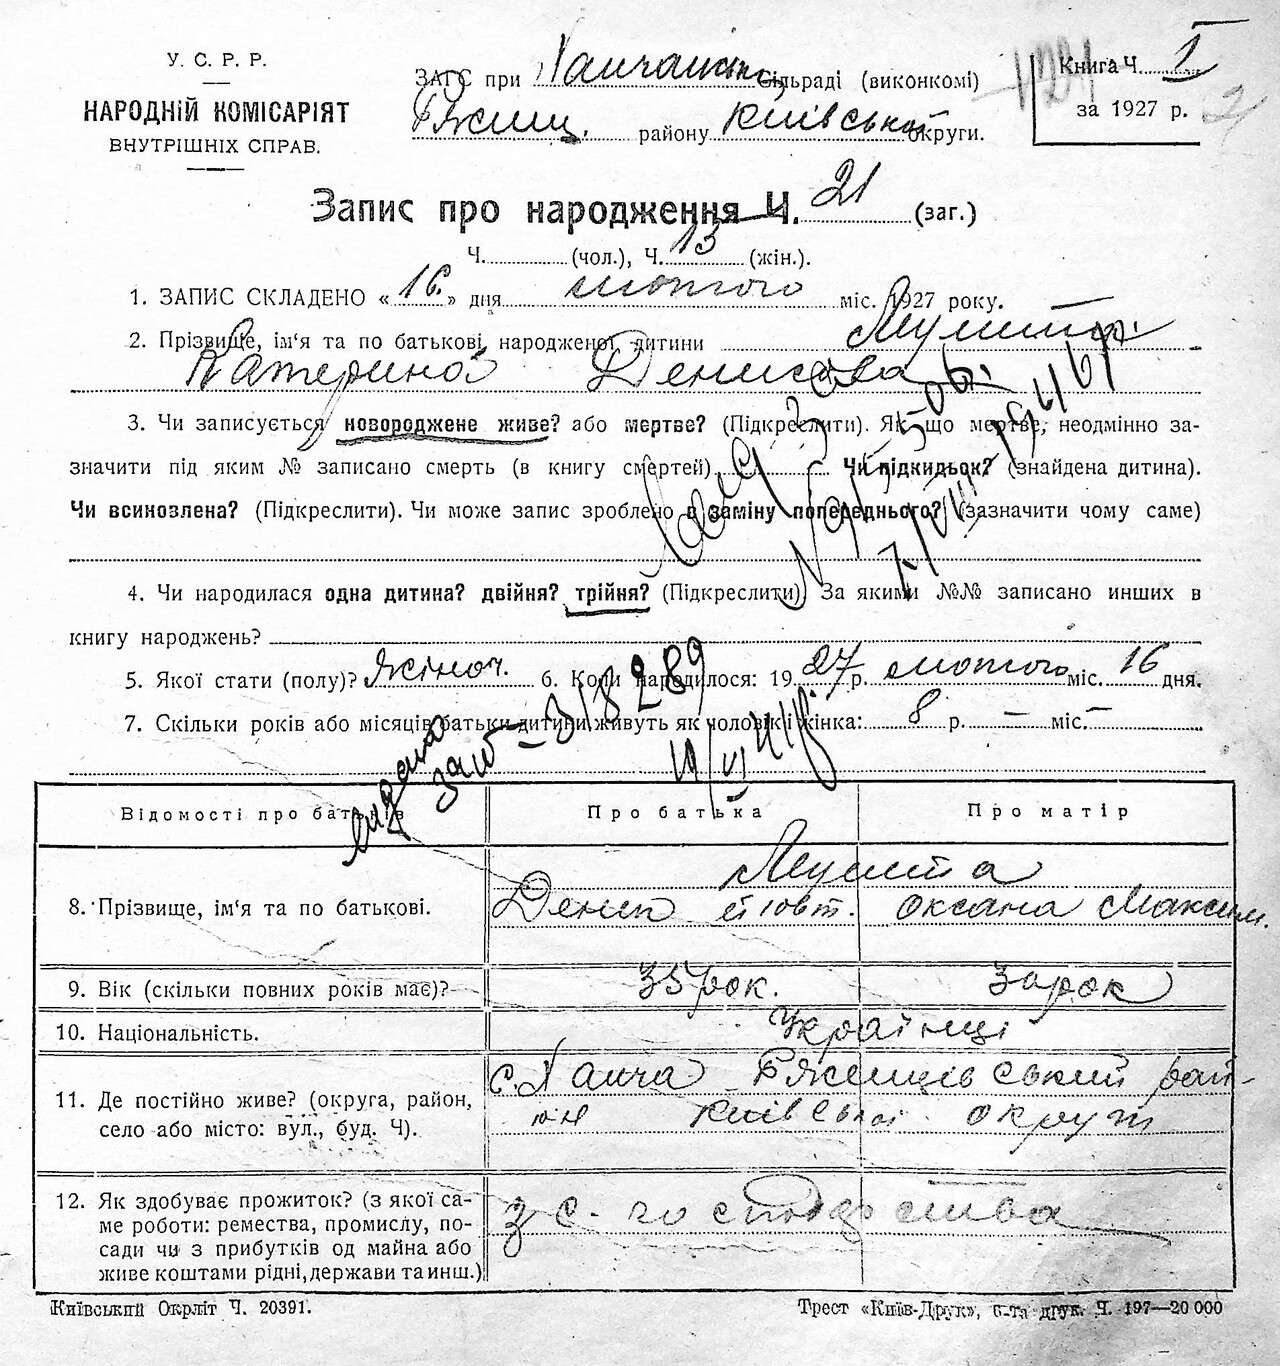 У. С. Р. Р.
НАРОДНІЙ КОМІСАРІЯТ
ВНУТРІШНІХ СПРАВ.
ЗАГС при Ханчанськ. сільраді (виконкомі)
Ржищ. району Київської округи.
Книга Ч. I
за 1927 р.
Запис про народження Ч. 21 (заг.)
Ч. (чол.), Ч. 13 (жін.).
1. ЗАПИС СКЛАДЕНО «16» дня лютого міс. 1927 року.
2. Прізвище, ім'я та по батькові народженої дитини
Катерина Денисова
3. Чи записується новороджене живе? або мертве? (Підкреслити). Як що мертве, неодмінно за-
значити під яким № записано смерть (в книгу смертей) Чи підкидьок? (знайдена дитина).
Чи всиновлена? (Підкреслити). Чи може запис зроблено в заміну попереднього? (зазначити чому саме)
4. Чи народилася одна дитина? двійня? трійня? (Підкреслити) За якими №№ записано инших в
книгу народжень?
5. Якої стати (полу)? жіноч. 6. Коли народилося: 1927 р. лютого міс. 16 дня.
7. Скільки років або місяців батьки дитини живуть як чоловік і жінка: 8 р. – міс. –
видано
Відомості про батьків
Про батька
Про матір
8. Прізвище, ім'я та по батькові.
Денис Оксана Максим.
9. Вік (скільки повних років має)?
35 рок. 30 рок
10. Національність.
Українці
11. Де постійно живе? (округа, район,
село або місто: вул., буд. Ч).
с. Ханча Ржищівський рай-
он Київської округи
12. Як здобуває прожиток? (з якої са-
ме роботи: ремества, промислу, по-
сади чи з прибутків од майна або
живе коштами рідні, держави та инш.)
з с. господарства
Київський Окрліт Ч. 20391.
Трест «Київ-Друк», 6-та друк. Ч. 197—20 000